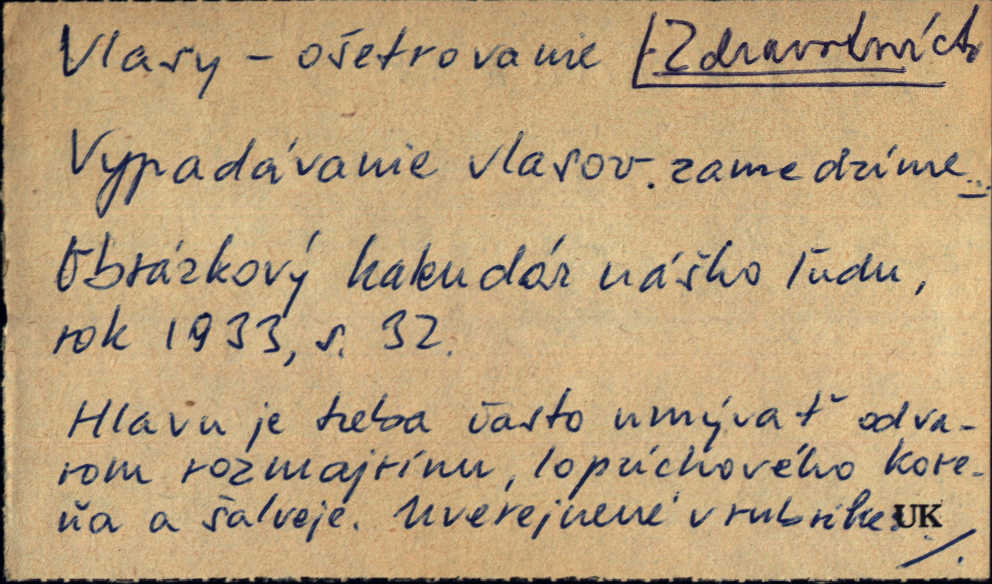 Vlasy - ošetrovanie Zdravotníct
Vypadávanie vlasov. zamedzíme...
Obrázkový kalendár nášho ľudu,
rok 1933, s. 32.
Hlavu je treba často umývať odva-
rom rozmajrínu, lopúchového kore-
ňa a šalveje. Uverejnené v rubrike:
UK
./.